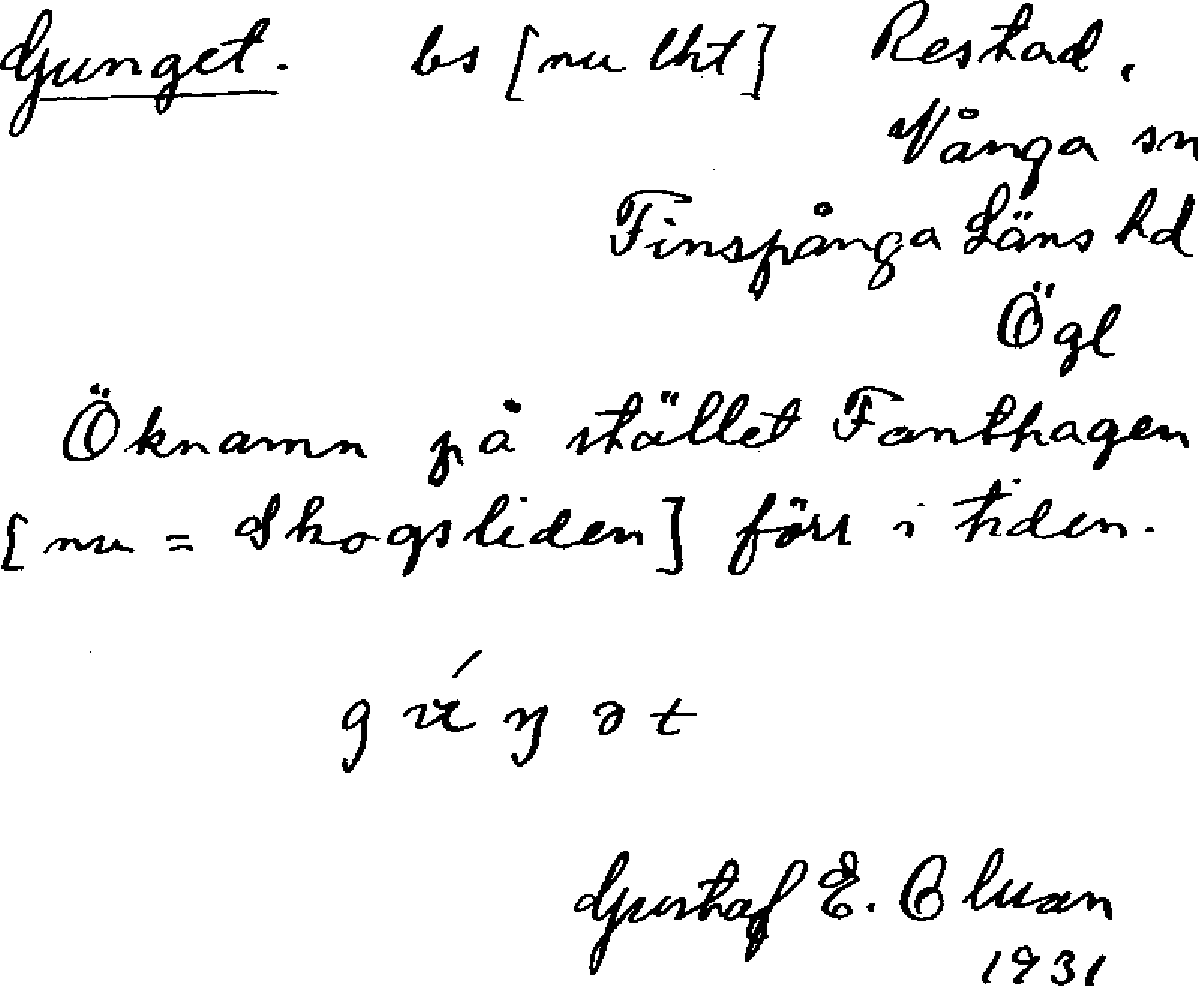 Gunget. bs [nu lht] Restad,
Vånga sn
Finspånga Läns hd
Ögl
Öknamn på stället Fanthagen
[nu = Skogsliden] förr i tiden.
Gustaf E.
1931